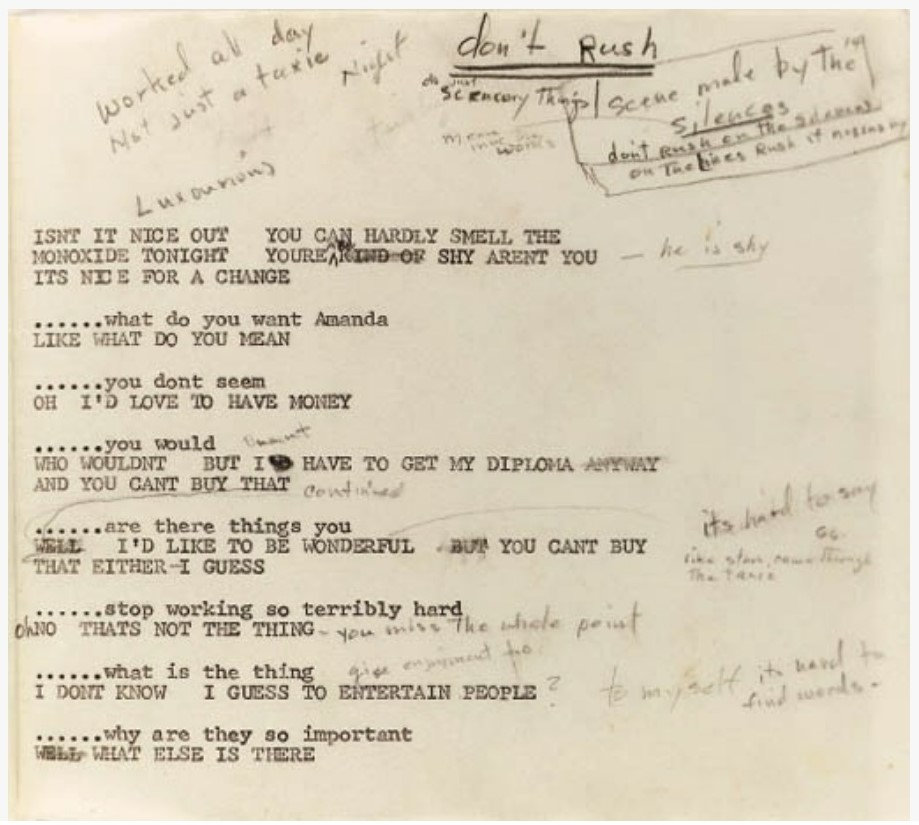 don't Rush
Worked all day
Night
Not just a taxie
Luxourious
do just
Scencory Things
scene made by the
silences
dont Rush on the silences
on the lines Rush it
ISNT IT NICE OUT YOU CAN HARDLY SMELL THE
MONOXIDE TONIGHT YOURE KIND OF SHY ARENT YOU — he is shy
ITS NICE FOR A CHANGE
......what do you want Amanda
LIKE WHAT DO YOU MEAN
......you dont seem
OH I'D LOVE TO HAVE MONEY
......you would
WHO WOULDNT BUT I HAVE TO GET MY DIPLOMA ANYWAY
AND YOU CANT BUY THAT continued
......are there things you
its hard to say
WELL I'D LIKE TO BE WONDERFUL BUT YOU CANT BUY
THAT EITHER-I GUESS
......stop working so terribly hard
oh NO THATS NOT THE THING - you miss the whole point
......what is the thing give enjoyment too
I DONT KNOW I GUESS TO ENTERTAIN PEOPLE ? to myself its hard to
find words -
......why are they so important
WELL WHAT ELSE IS THERE